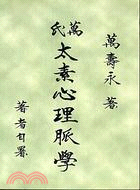 萬壽永 著
萬氏
太素心理脈學
著者自署